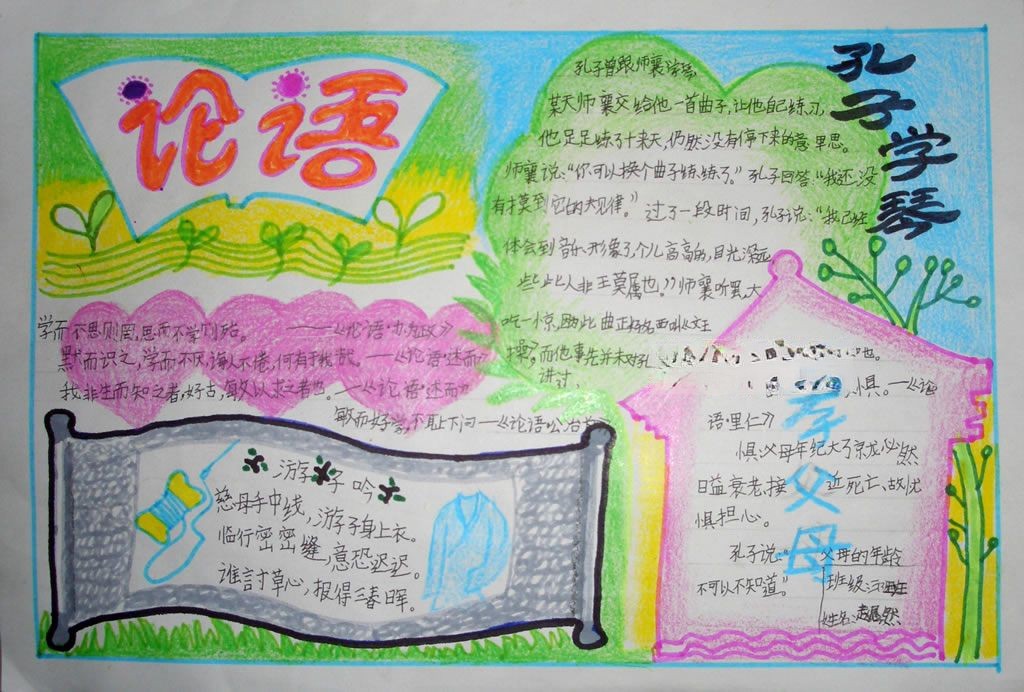 论语
孔子学琴
孔子曾跟师襄学琴,
某天师襄交给他一首曲子,让他自己练习,
他足足练了十来天,仍然没有停下来的意思。
师襄说:“你可以换个曲子练练了。”孔子回答:“我还没
有摸到它的大规律。”过了一段时间,孔子说:“我已经
体会到音乐形象了,个儿高高的,目光深远,
些此人非王莫属也。”师襄听罢,大
吃一惊,因此曲正好名西叫《文王
操》。而他事先并未对孔
讲过,
学而不思则罔,思而不学则殆。——《论语·为政》
默而识之,学而不厌,诲人不倦,何有于我哉。——《论语·述而》
我非生而知之者,好古,敏以求之者也。——《论语·述而》
敏而好学,不耻下问——《论语·公冶长
游子吟
慈母手中线,游子身上衣。
临行密密缝,意恐迟迟。
谁言寸草心,报得三春晖。
孝父母
也。
惧。——《论
语·里仁》
惧:父母年纪大了,必然
日益衰老接近死亡,故忧
惧担心。
孔子说:“父母的年龄
不可以不知道。”
班级:
姓名: